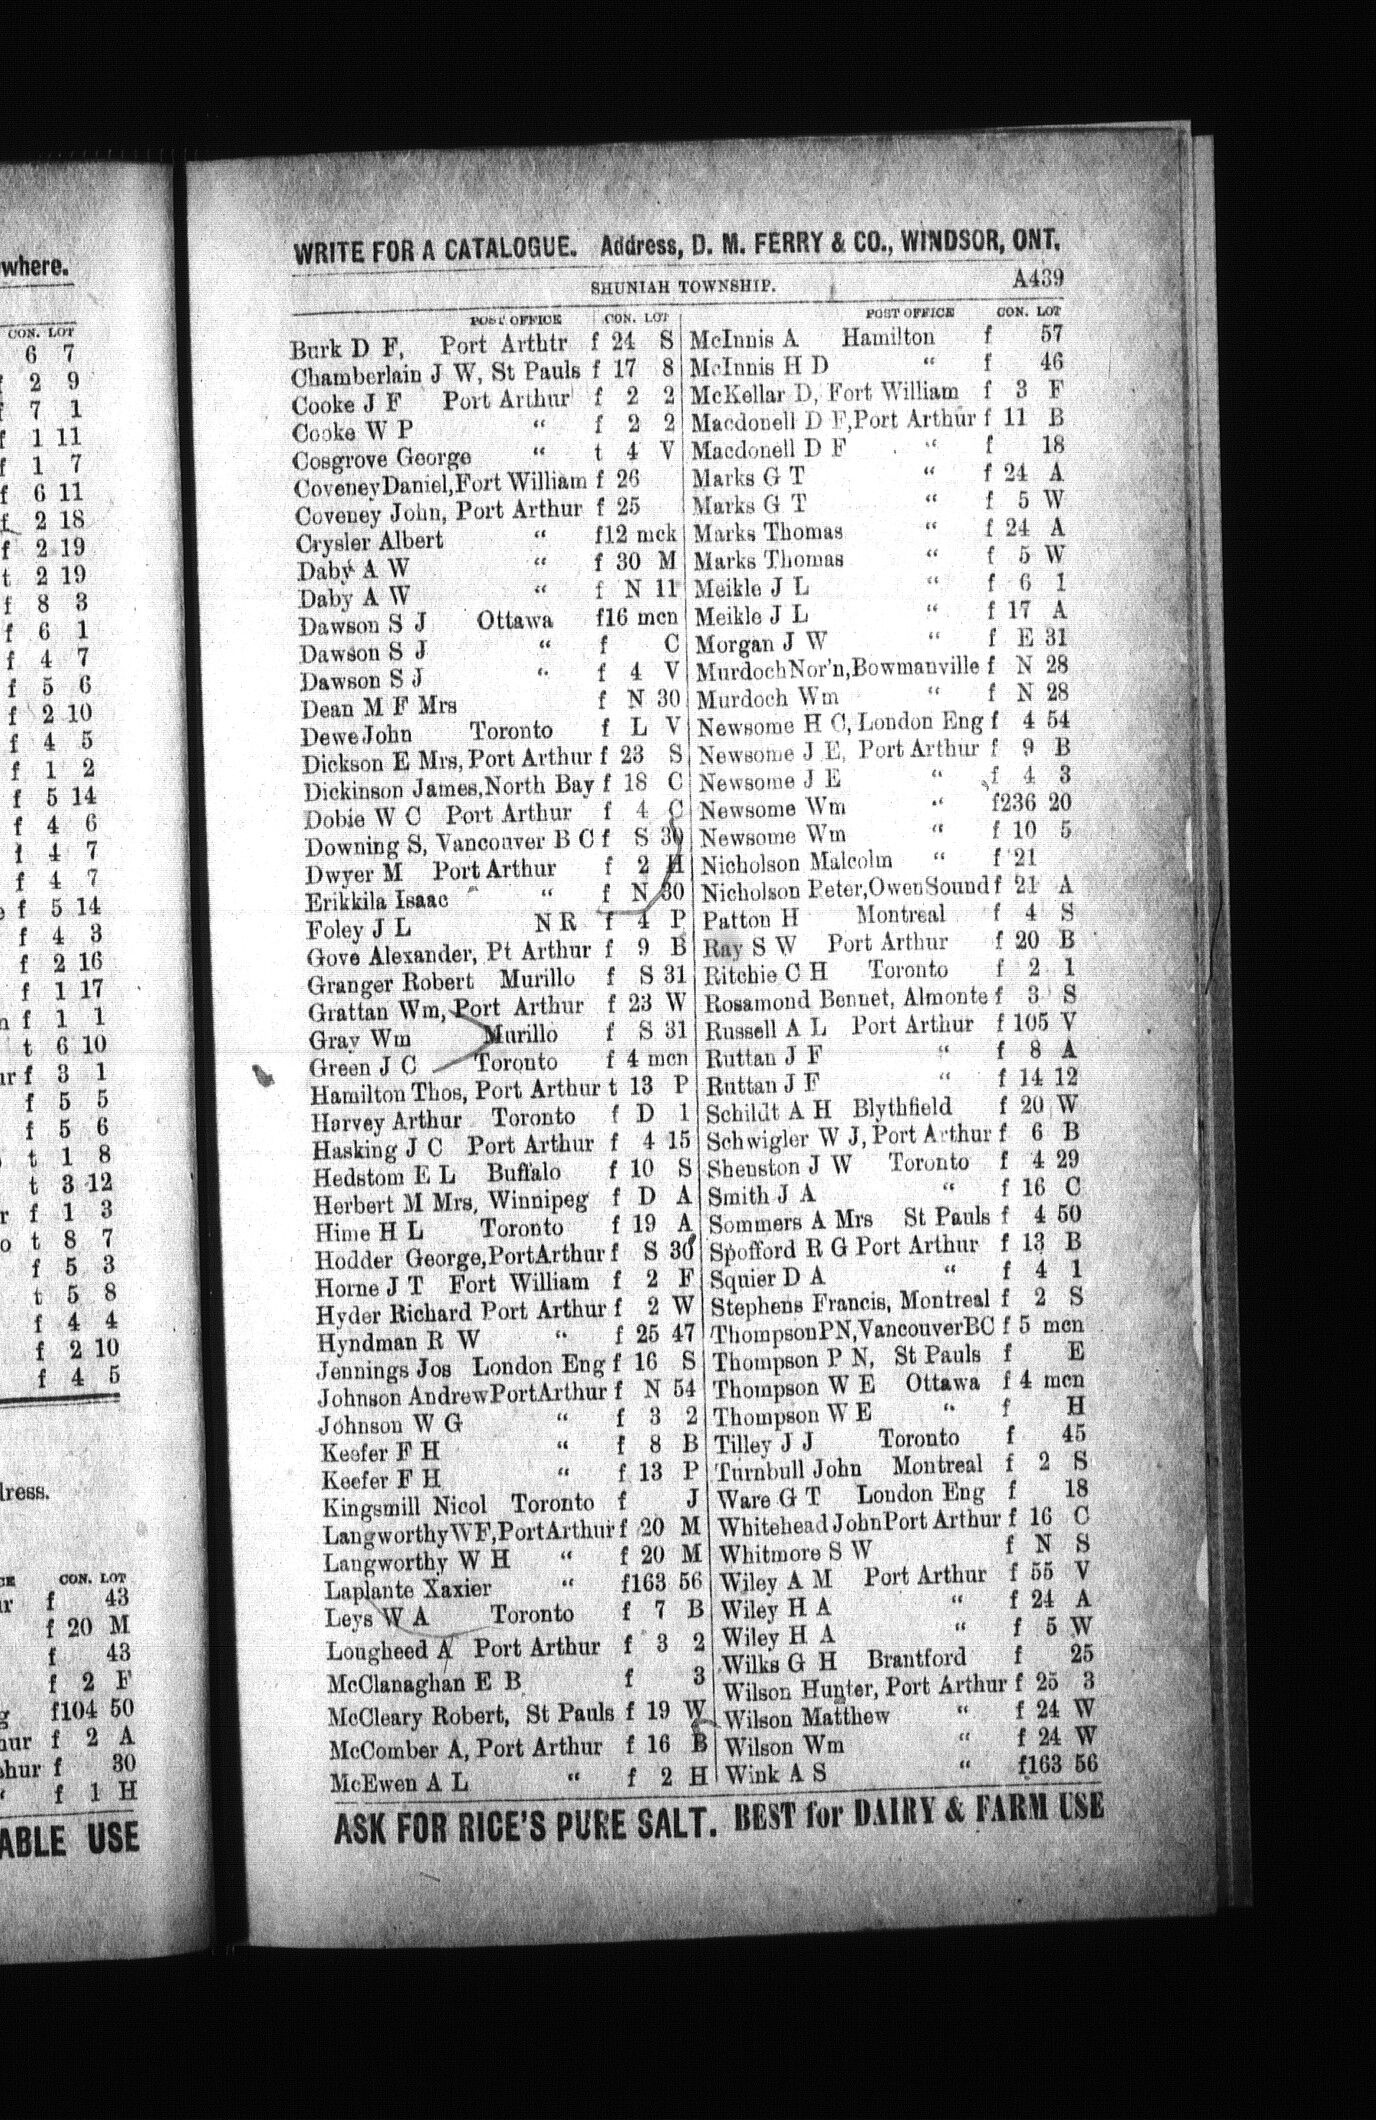 where.
CON. LOT
6 7
f 2 9
f 7 1
f 1 11
f 1 7
f 6 11
f 2 18
f 2 19
t 2 19
f 8 3
f 6 1
f 4 7
f 5 6
f 2 10
f 4 5
f 1 2
f 5 14
f 4 6
f 4 7
f 4 7
f 5 14
f 4 3
f 2 16
f 1 17
n f 1 1
t 6 10
ur f 3 1
f 5 5
f 5 6
t 1 8
t 3 12
r f 1 3
o t 8 7
f 5 3
t 5 8
f 4 4
f 2 10
f 4 5
dress.
CON. LOT
ur f 43
f 20 M
f 43
f 2 F
g f104 50
hur f 2 A
hur f 30
“ f 1 H
ABLE USE
WRITE FOR A CATALOGUE. Address, D. M. FERRY & CO., WINDSOR, ONT.
SHUNIAH TOWNSHIP. A439
POST OFFICE CON. LOT
Burk D F, Port Arthtr f 24 S
Chamberlain J W, St Pauls f 17 8
Cooke J F Port Arthur f 2 2
Cooke W P “ f 2 2
Cosgrove George “ t 4 V
Coveney Daniel, Fort William f 26
Coveney John, Port Arthur f 25
Crysler Albert “ f12 mck
Daby A W “ f 30 M
Daby A W “ f N 11
Dawson S J Ottawa f16 mcn
Dawson S J “ f C
Dawson S J “ f 4 V
Dean M F Mrs f N 30
Dewe John Toronto f L V
Dickson E Mrs, Port Arthur f 23 S
Dickinson James, North Bay f 18 C
Dobie W C Port Arthur f 4 C
Downing S, Vancouver B C f S 30
Dwyer M Port Arthur f 2 H
Erikkila Isaac “ f N 30
Foley J L N R f 4 P
Gove Alexander, Pt Arthur f 9 B
Granger Robert Murillo f S 31
Grattan Wm, Port Arthur f 23 W
Gray Wm Murillo f S 31
Green J C Toronto f 4 mcn
Hamilton Thos, Port Arthur t 13 P
Harvey Arthur Toronto f D 1
Hasking J C Port Arthur f 4 15
Hedstom E L Buffalo f 10 S
Herbert M Mrs, Winnipeg f D A
Hime H L Toronto f 19 A
Hodder George, Port Arthur f S 30
Horne J T Fort William f 2 F
Hyder Richard Port Arthur f 2 W
Hyndman R W “ f 25 47
Jennings Jos London Eng f 16 S
Johnson Andrew Port Arthur f N 54
Johnson W G “ f 3 2
Keefer F H “ f 8 B
Keefer F H “ f 13 P
Kingsmill Nicol Toronto f J
Langworthy W F, Port Arthur f 20 M
Langworthy W H “ f 20 M
Laplante Xaxier “ f163 56
Leys W A Toronto f 7 B
Lougheed A Port Arthur f 3 2
McClanaghan E B f 3
McCleary Robert, St Pauls f 19 W
McComber A, Port Arthur f 16 B
McEwen A L “ f 2 H
POST OFFICE CON. LOT
McInnis A Hamilton f 57
McInnis H D “ f 46
McKellar D, Fort William f 3 F
Macdonell D F, Port Arthur f 11 B
Macdonell D F “ f 18
Marks G T “ f 24 A
Marks G T “ f 5 W
Marks Thomas “ f 24 A
Marks Thomas “ f 5 W
Meikle J L “ f 6 1
Meikle J L “ f 17 A
Morgan J W “ f E 31
Murdoch Nor'n, Bowmanville f N 28
Murdoch Wm “ f N 28
Newsome H C, London Eng f 4 54
Newsome J E, Port Arthur f 9 B
Newsome J E “ f 4 3
Newsome Wm “ f236 20
Newsome Wm “ f 10 5
Nicholson Malcolm “ f 21
Nicholson Peter, Owen Sound f 21 A
Patton H Montreal f 4 S
Ray S W Port Arthur f 20 B
Ritchie C H Toronto f 2 1
Rosamond Bennet, Almonte f 3 S
Russell A L Port Arthur f 105 V
Ruttan J F “ f 8 A
Ruttan J F “ f 14 12
Schildt A H Blythfield f 20 W
Schwigler W J, Port Arthur f 6 B
Shenston J W Toronto f 4 29
Smith J A “ f 16 C
Sommers A Mrs St Pauls f 4 50
Spofford R G Port Arthur f 13 B
Squier D A “ f 4 1
Stephens Francis, Montreal f 2 S
Thompson P N, Vancouver BC f 5 mcn
Thompson P N, St Pauls f E
Thompson W E Ottawa f 4 mcn
Thompson W E “ f H
Tilley J J Toronto f 45
Turnbull John Montreal f 2 S
Ware G T London Eng f 18
Whitehead John Port Arthur f 16 C
Whitmore S W f N S
Wiley A M Port Arthur f 55 V
Wiley H A “ f 24 A
Wiley H A “ f 5 W
Wilks G H Brantford f 25
Wilson Hunter, Port Arthur f 25 3
Wilson Matthew “ f 24 W
Wilson Wm “ f 24 W
Wink A S “ f163 56
ASK FOR RICE'S PURE SALT. BEST for DAIRY & FARM USE